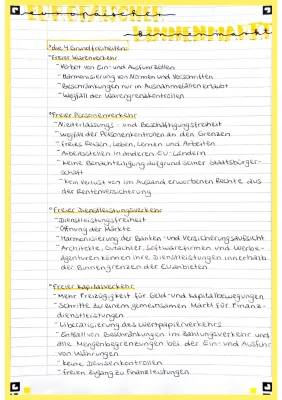 EUROPÄISCHER
BINNENMARKT
°die 4 Grundfreiheiten:
°Freier Warenverkehr
- Verbot von Ein- und Ausfuhrzöllen
- Harmonisierung von Normen und Vorschriften
- Beschränkungen nur in Ausnahmefällen erlaubt
- Wegfall der Warengrenzkontrollen
°Freier Personenverkehr
- Niederlassungs- und Beschäftigungsfreiheit
- Wegfall der Personenkontrollen an den Grenzen
- freies Reisen, Leben, Lernen und Arbeiten
- Arbeitsstellen in anderen EU-Ländern
- keine Benachteiligung aufgrund seiner Staatsbürger-
schaft
- kein Verlust von im Ausland erworbenen Rechte aus
der Rentenversicherung
°Freier Dienstleistungsverkehr
- Dienstleistungsfreiheit
- Öffnung der Märkte
- Harmonisierung der Banken- und Versicherungsaufsicht
- Architekte, Gutachter, Softwarefirmen und Werbe-
agenturen können ihre Dienstleistungen innerhalb
der Binnengrenzen der EU anbieten
°Freier Kapitalverkehr
- Mehr Freizügigkeit für Geld- und Kapitalbewegungen
- Schritte zu einem gemeinsamen Markt für Finanz-
dienstleistungen
- Liberalisierung des Wertpapierverkehrs
- Entfall von Beschränkungen im Zahlungsverkehr und
alle Mengenbegrenzungen bei der Ein- und Ausfuhr
von Währungen
- keine Devisenkontrollen
- freien Zugang zu Finanzleistungen